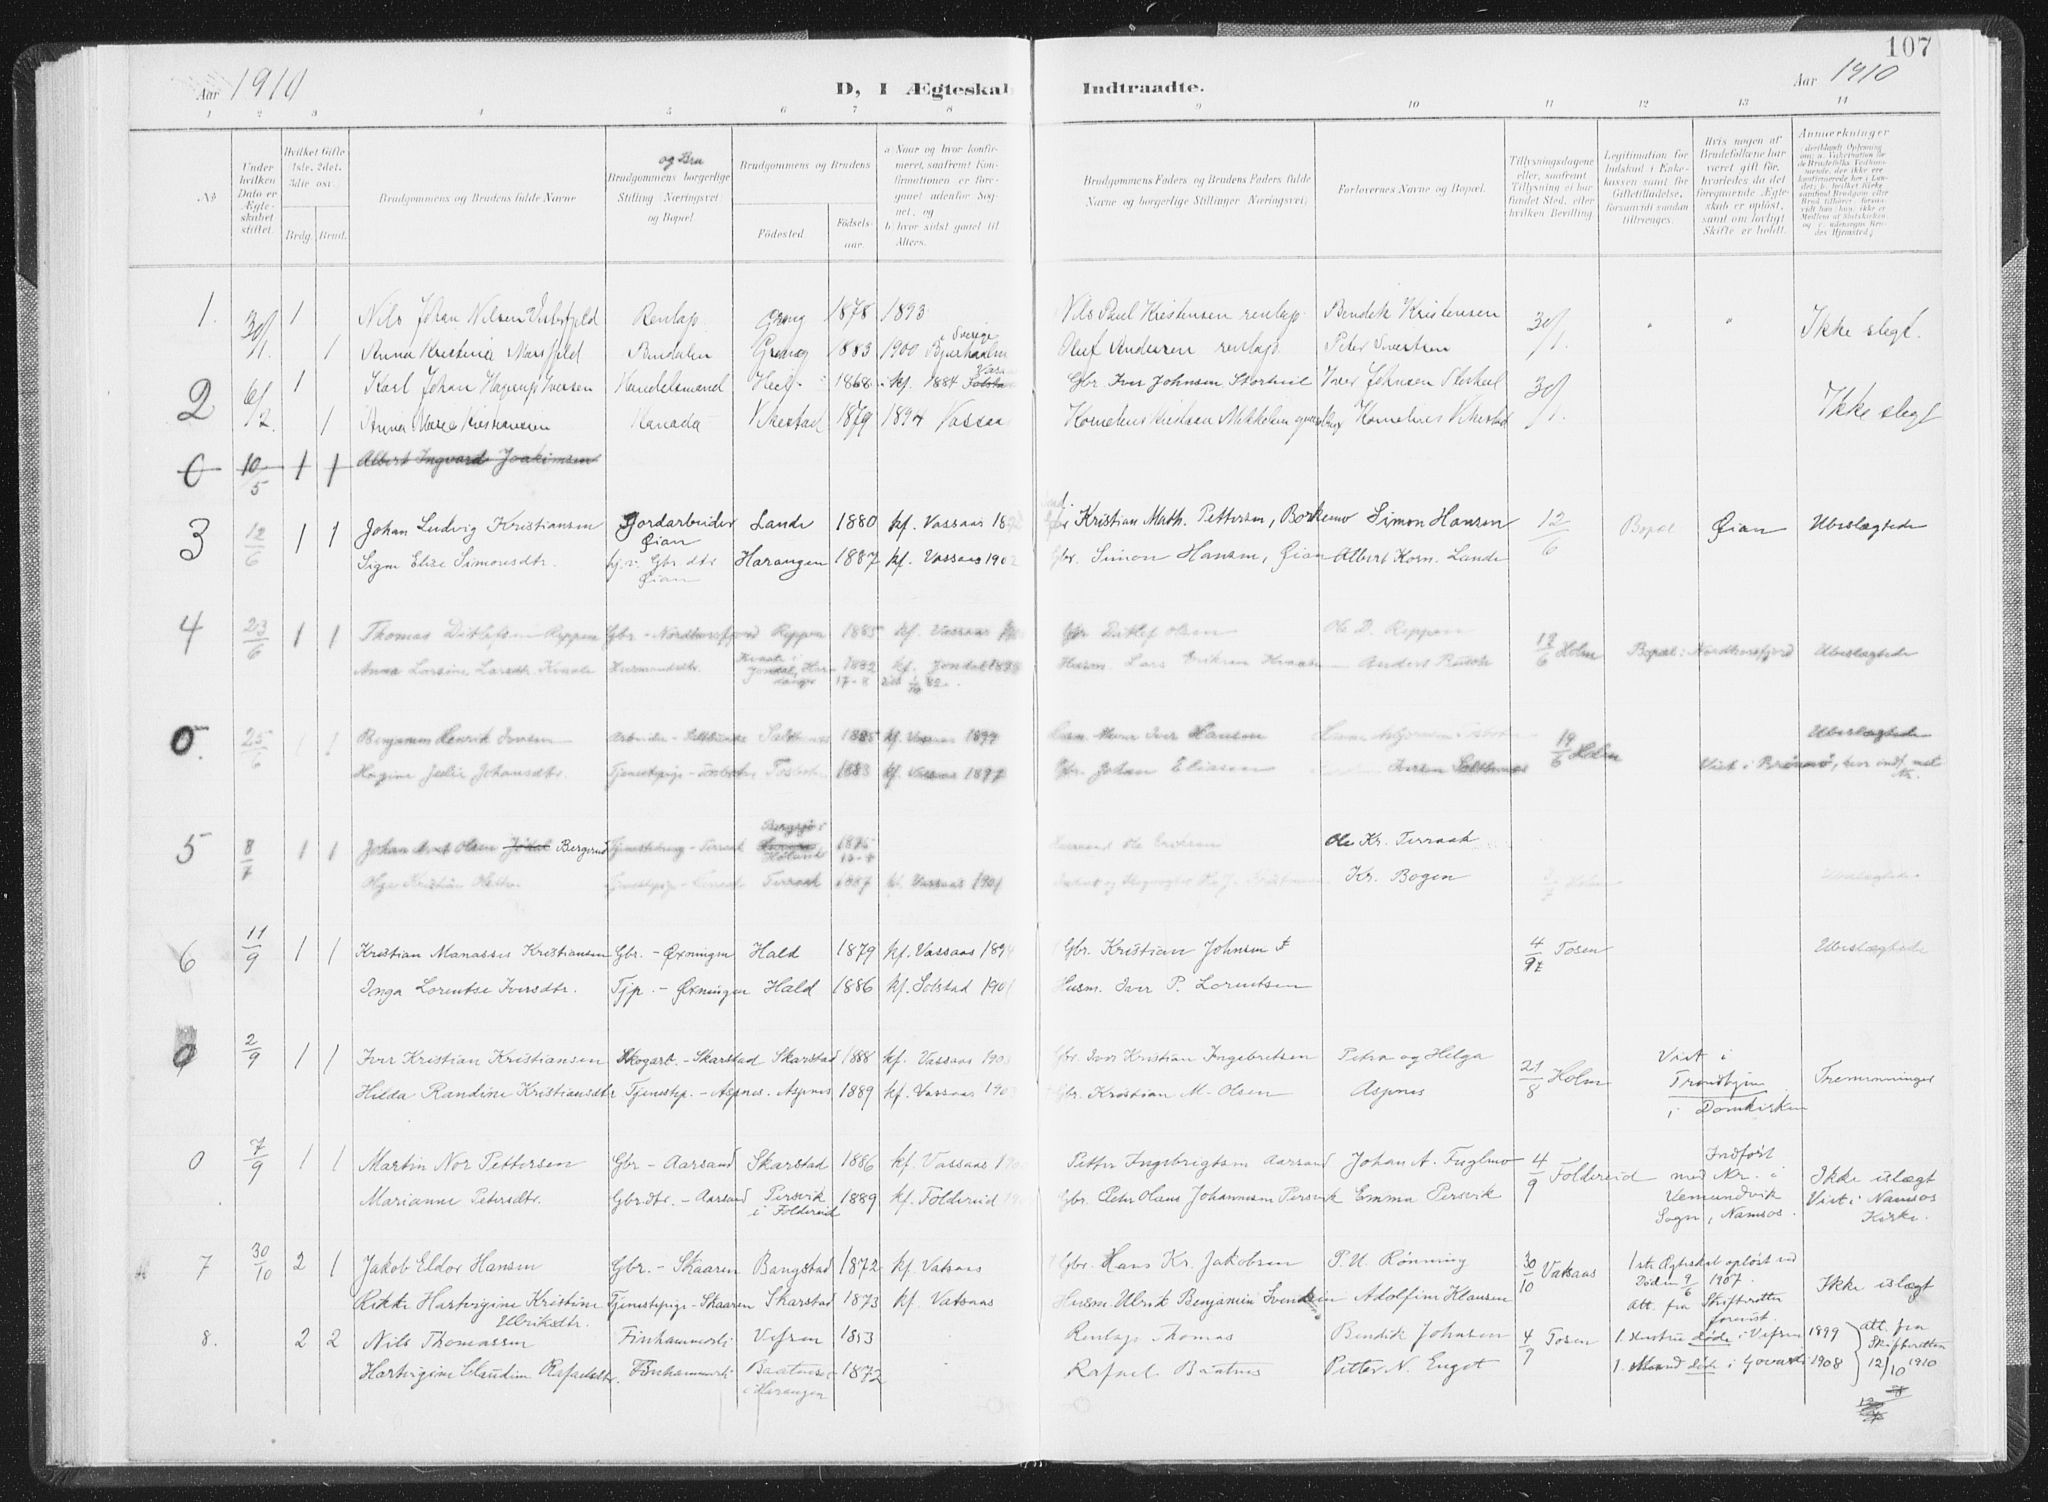 107
Aar 1910
D, I Ægteskab Indtraadte.
Aar 1910
1 2 3 4 5 6 7 8 9 10 11 12 13 14
No
Under hvilken Dato er Ægteskabet stiftet.
Hvilket Gifte 1ste, 2det, 3die osv.
Brdg. Brud.
Brudgommens og Brudens fulde Navne
og Bru
Brudgommens borgerlige Stilling (Næringsvei) og Bopæl.
Brudgommens og Brudens
Fødested.
Fødselsaar.
a. Naar og hvor konfirmeret, saafremt Konfirmationen er foregaaet udenfor Sognet, og
b. hvor sidst gaaet til Alters.
Brudgommens Faders og Brudens Faders fulde Navne og borgerlige Stillinger (Næringsvei)
Forlovernes Navne og Bopæl.
Tillysningsdagene eller, saafremt Tillysning ei har fundet Sted, efter hvilken Bevilling.
Legitimation for Indskud i Enkekassen samt for Giftetilladelse, forsaavidt saadan tiltrænges.
Hvis nogen af Brudefolkene har været gift før, hvorledes da det foregaaende Ægteskab er opløst, samt om lovligt Skifte er holdt.
Anmerkninger
1. 30/1. 1 Nils Johan Nilsen Renlap Grong 1878 1893 Nils Paul Kristensen renlap. Bendik Kristensen 30/1. " " Ikke slegt.
1 Anna Kristina Marsfjeld Bindalen Grong 1883 1900 Sverige Oluf Andersen renlap. Peter Sivertsen
2 6/12. 1 Karl Johan Hagerup Iversen Handelsmand Heil 1868 kf. 1884 Gbr. Iver Johnsen Storheil Iver Johnsen Storheil 30/1. Ikke slegt
1 Anna Marie Kristiansen Kanada Vikestad 1879 1894 Vassaas Kornelius Kristian Mikkelsen Kornelius Vikestad
6 10/5 1 1 Albert Ingvard Joakimsen
3 12/6 1 1 Johan Ludvig Kristiansen Jordarbeider Øian Lande 1880 kf. Vassaas Kristian Math. Pettersen, Borkemo Simon Hansen 12/6 Bopæl Øian Ubeslægtede
Signe Elise Simonsdtr. hj.v. Gbr. dtr Øian Harangen 1887 kf. Vassaas 1902 Gbr. Simon Hansen, Øian Albert Korn. Lande
4 23/6 1 1 Thomas Ditlefsen Reppen Gbr. - Nordhorsfjord Reppen 1885 kf. Vassaas Gbr. Ditlef Olsen Ole D. Reppen 19/6 Holm Bopæl: Nordhorsfjord Ubeslægtede
Anna Lovise Larsdtr. Kvaale Husmandsdtr. Kvaale i Jondal, Hardanger 1882 17-8 kf. Jondal Husm. Lars Eriksen Kvaale Anders
0. 25/6 1 1 Benjamin Henrik Iversen Arbeider 1885 kf. Vassaas 1899 Iver Hansen 19/6 Holm Ubeslægtede
Hagine Julie Johansdtr. Tjenestepige - Tosbotn Tosbotn 1883 kf. Vassaas 1897 Gbr. Johan Eliasen Iversen Viet i Brønnø, hvor indf. med Nr.
5 8/7 1 1 Johan Olsen Bergerud Terraak 1875 Ole Eriksen Ole Kr. Terraak
Olga Kristine Tjenestepige - Terraak Terraak 1887 kf. Vassaas 1901 Kr. Bogen Holm Ubeslægtede
6 11/9 1 1 Kristian Manasses Kristiansen Gbr. - Øxningen Hald 1879 kf. Vassaas 1894 Gbr. Kristian Johnsen † 4/9 Tosen Ubeslægtede
Inga Lorentse Iversdtr. Tjp. - Øxningen Hald 1886 kf. Solstad 1901 Husm. Iver P. Lorentsen
0 2/9 1 1 Iver Kristian Kristiansen Skogarb. - Skarstad Skarstad 1888 kf. Vassaas 1903 Gbr. Iver Kristian Ingebretsen Petra og Helga Aspnes 21/8 Holm Viet i Trondhjem i Domkirken Tremenninger
Hilda Randine Kristiansdtr Tjenestep. - Aspnes. Aspnes 1889 kf. Vassaas 1903 Gbr. Kristian M. Olsen
0 7/9 1 1 Martin Nor Pettersen Gbr - Aarsand Skarstad 1886 kf. Vassaas Petter Ingebrigtsen Aarsand Johan A. Fuglmo 4/9 Foldereid Indført med Nr. i Vemundvik Sogn, Namsos. Ikke islægt Viet i Namsos Kirke.
Marianne Petersdtr. Gbrdtr. - Aarsand Persvik i Foldereid 1889 kf. Foldereid Gbr. Peter Olaus Johannesen Persvik Emma Persvik
7 30/10 2 1 Jakob Eldor Hansen Gbr. - Skaaren Bangstad 1872 kf. Vatsaas Gbr. Hans Kr. Jakobsen P. U. Rønning 30/10 Vatsaas 1ste Ægteskab opløst ved Døden 9/6 1907. Att. fra Skifteretten forevist. Ikke islægt
Rikke Hartvigine Kristine Ulriksdtr. Tjenestepige - Skaaren Skarstad 1873 kf. Vatsaas Husm. Ulrik Benjamin Svendsen Adolfine Klausen
8. 2 2 Nils Thomassen Finhammerli Vefsen 1853 Renlap Thomas Bendik Johnsen 4/9 Tosen 1. Hustru døde i Vefsen 1899 att. fra Skifteretten 12/10 1910
Hartvigine Claudine Rafaelsdtr. Finhammerli Baatnes i Harangen 1872 Rafael Baatnes Petter N. Enget 1. Mand døde i 1908